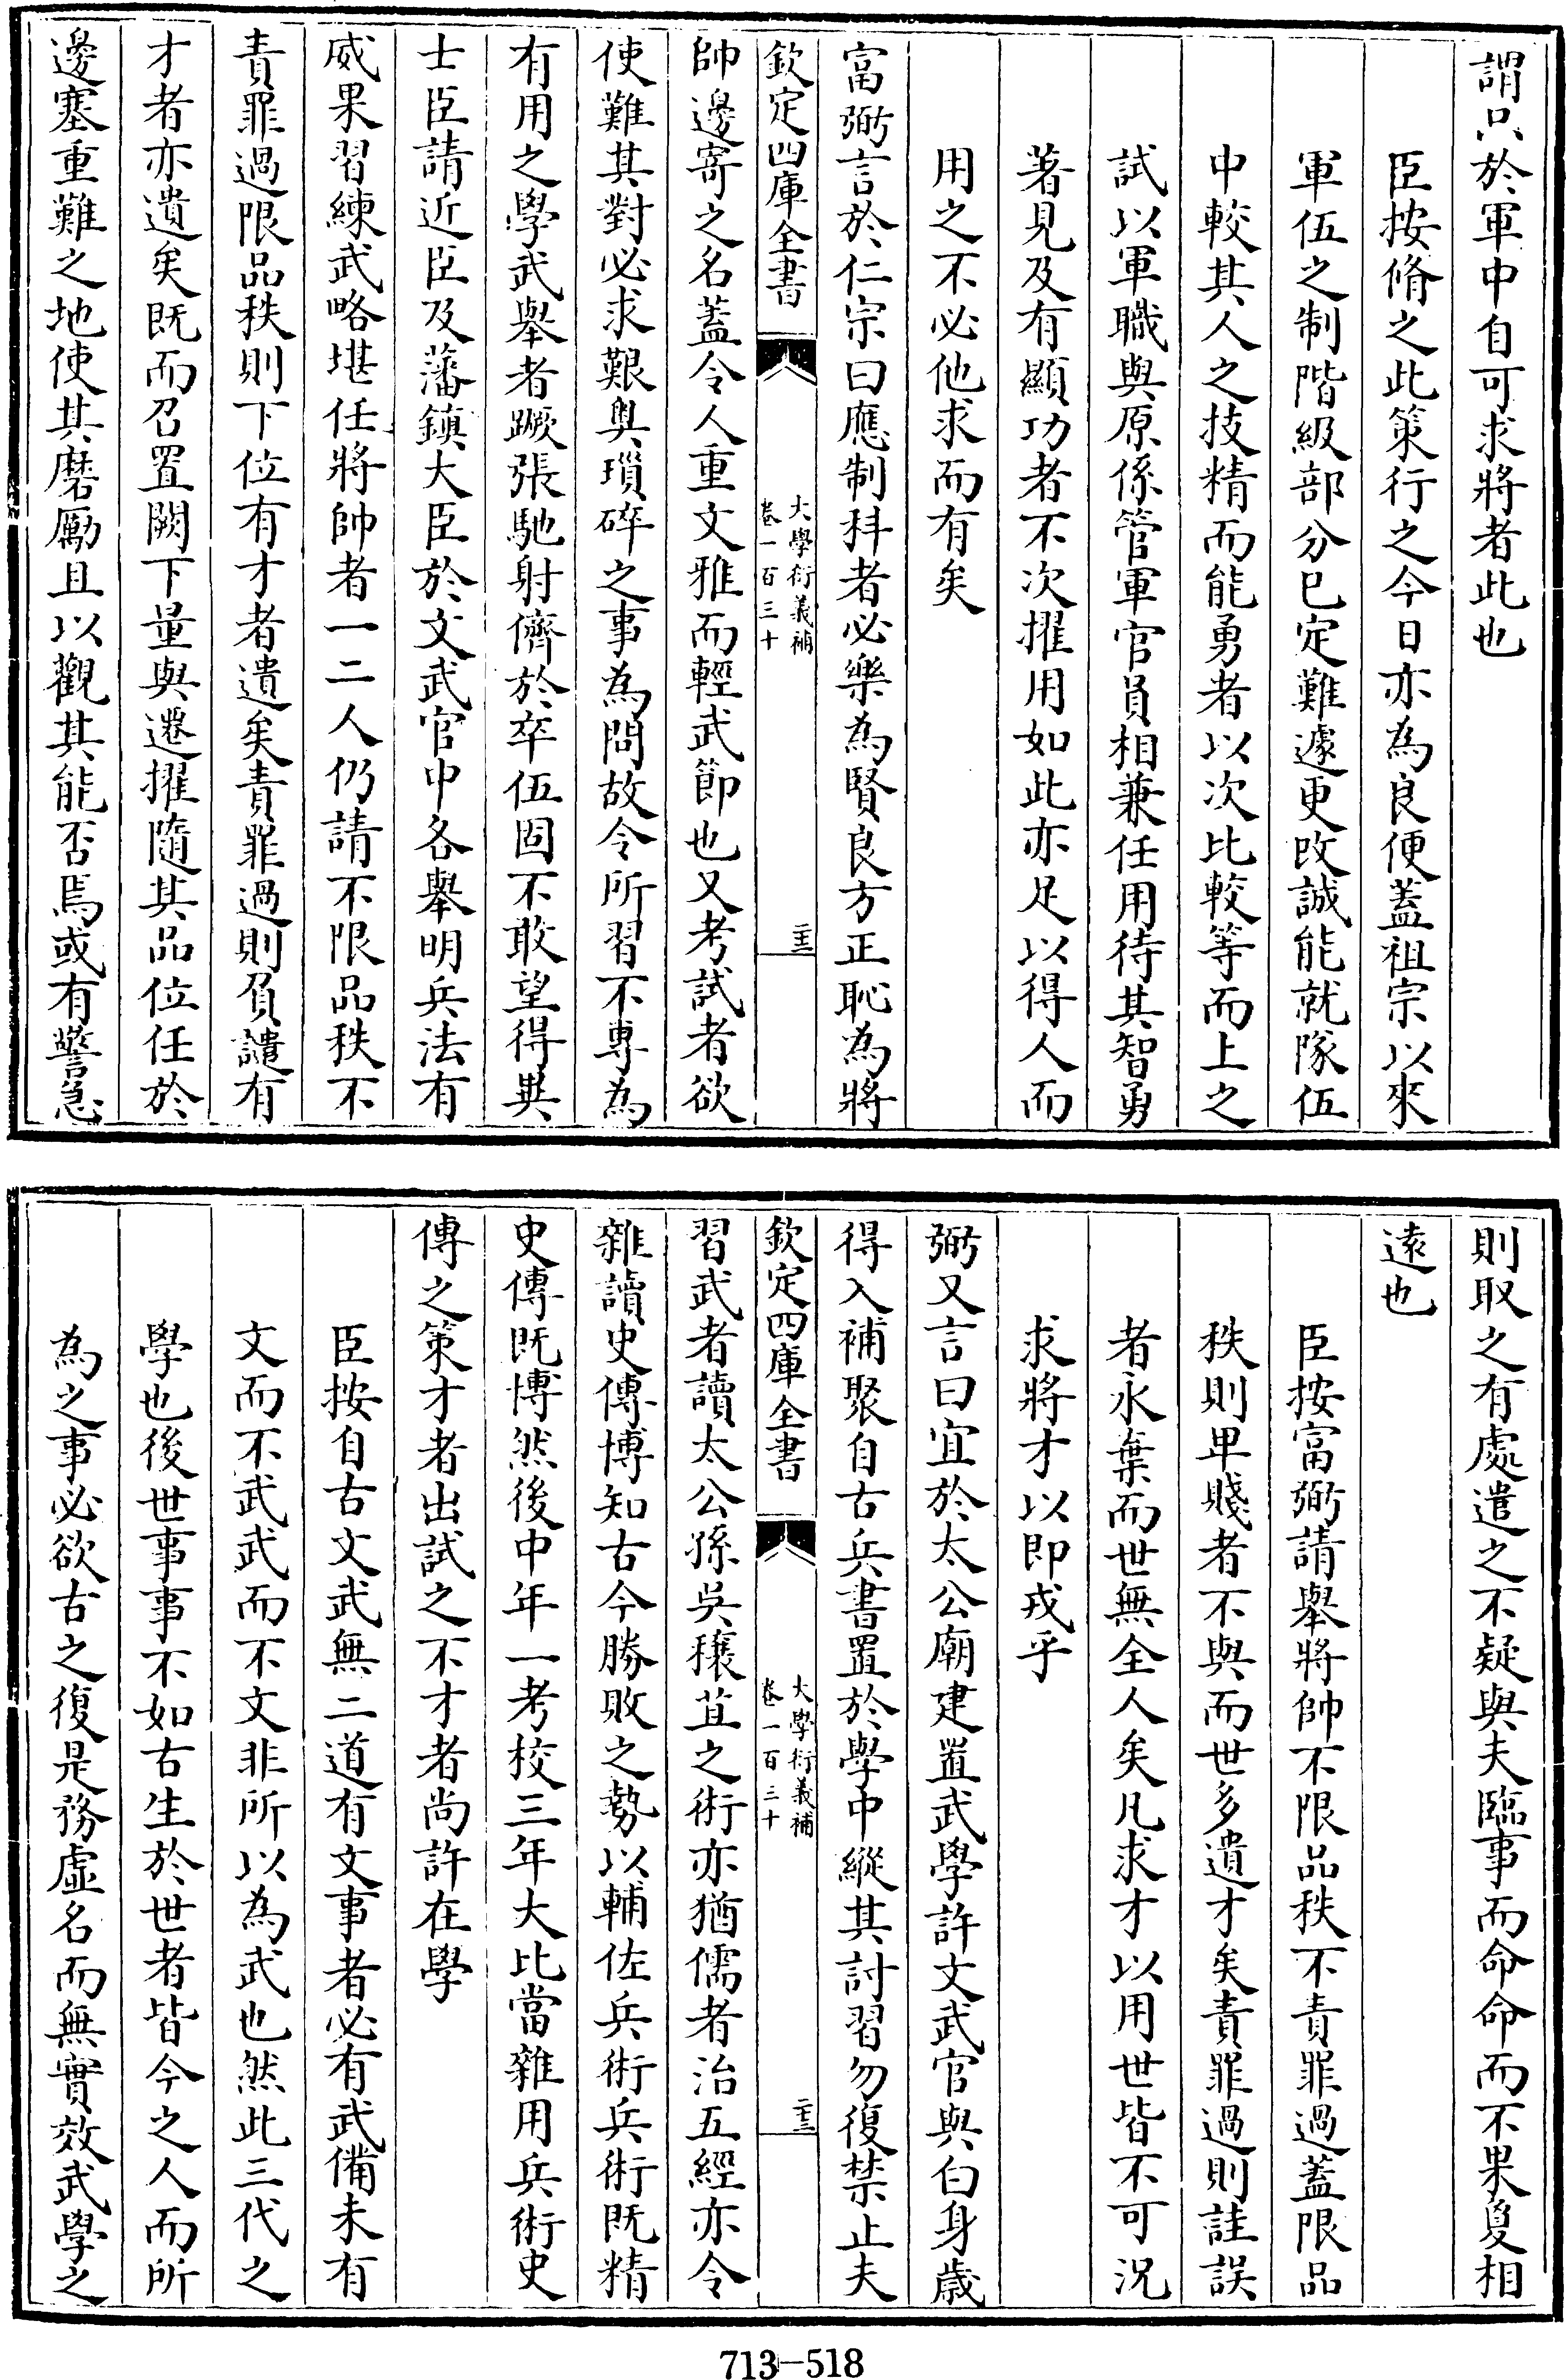 謂只於軍中自可求將者此也
臣按脩之此策行之今日亦為良便蓋祖宗以來
軍伍之制階級部分已定難遽更改誠能就隊伍
中較其人之技精而能勇者以次比較等而上之
試以軍職與原係管軍官員相兼任用待其智勇
著見及有顯功者不次擢用如此亦足以得人而
用之不必他求而有矣
富弼言於仁宗曰應制科者必樂為賢良方正恥為將
欽定四庫全書
大學衍義補
卷一百三十
二十三
帥邊寄之名蓋令人重文雅而輕武節也又考試者欲
使難其對必求艱奧瑣碎之事為問故令所習不專為
有用之學武舉者蹶張馳射儕於卒伍固不敢望得異
士臣請近臣及藩鎮大臣於文武官中各舉明兵法有
威果習練武略堪任將帥者一二人仍請不限品秩不
責罪過限品秩則下位有才者遺矣責罪過則負譴有
才者亦遺矣既而召置闕下量與遷擢隨其品位任於
邊塞重難之地使其磨勵且以觀其能否焉或有警急
則取之有處遣之不疑與夫臨事而命命而不果夐相
遠也
臣按富弼請舉將帥不限品秩不責罪過蓋限品
秩則卑賤者不與而世多遺才矣責罪過則詿誤
者永棄而世無全人矣凡求才以用世皆不可況
求將才以即戎乎
弼又言曰宜於太公廟建置武學許文武官與白身歲
得入補聚自古兵書置於學中縱其討習勿復禁止夫
欽定四庫全書
大學衍義補
卷一百三十
二十三
習武者讀太公孫吳穰苴之術亦猶儒者治五經亦令
雜讀史傳博知古今勝敗之勢以輔佐兵術兵術既精
史傳既博然後中年一考校三年大比當雜用兵術史
傳之策才者出試之不才者尚許在學
臣按自古文武無二道有文事者必有武備未有
文而不武武而不文非所以為武也然此三代之
學也後世事事不如古生於世者皆今之人而所
為之事必欲古之復是務虛名而無實效武學之
713-518